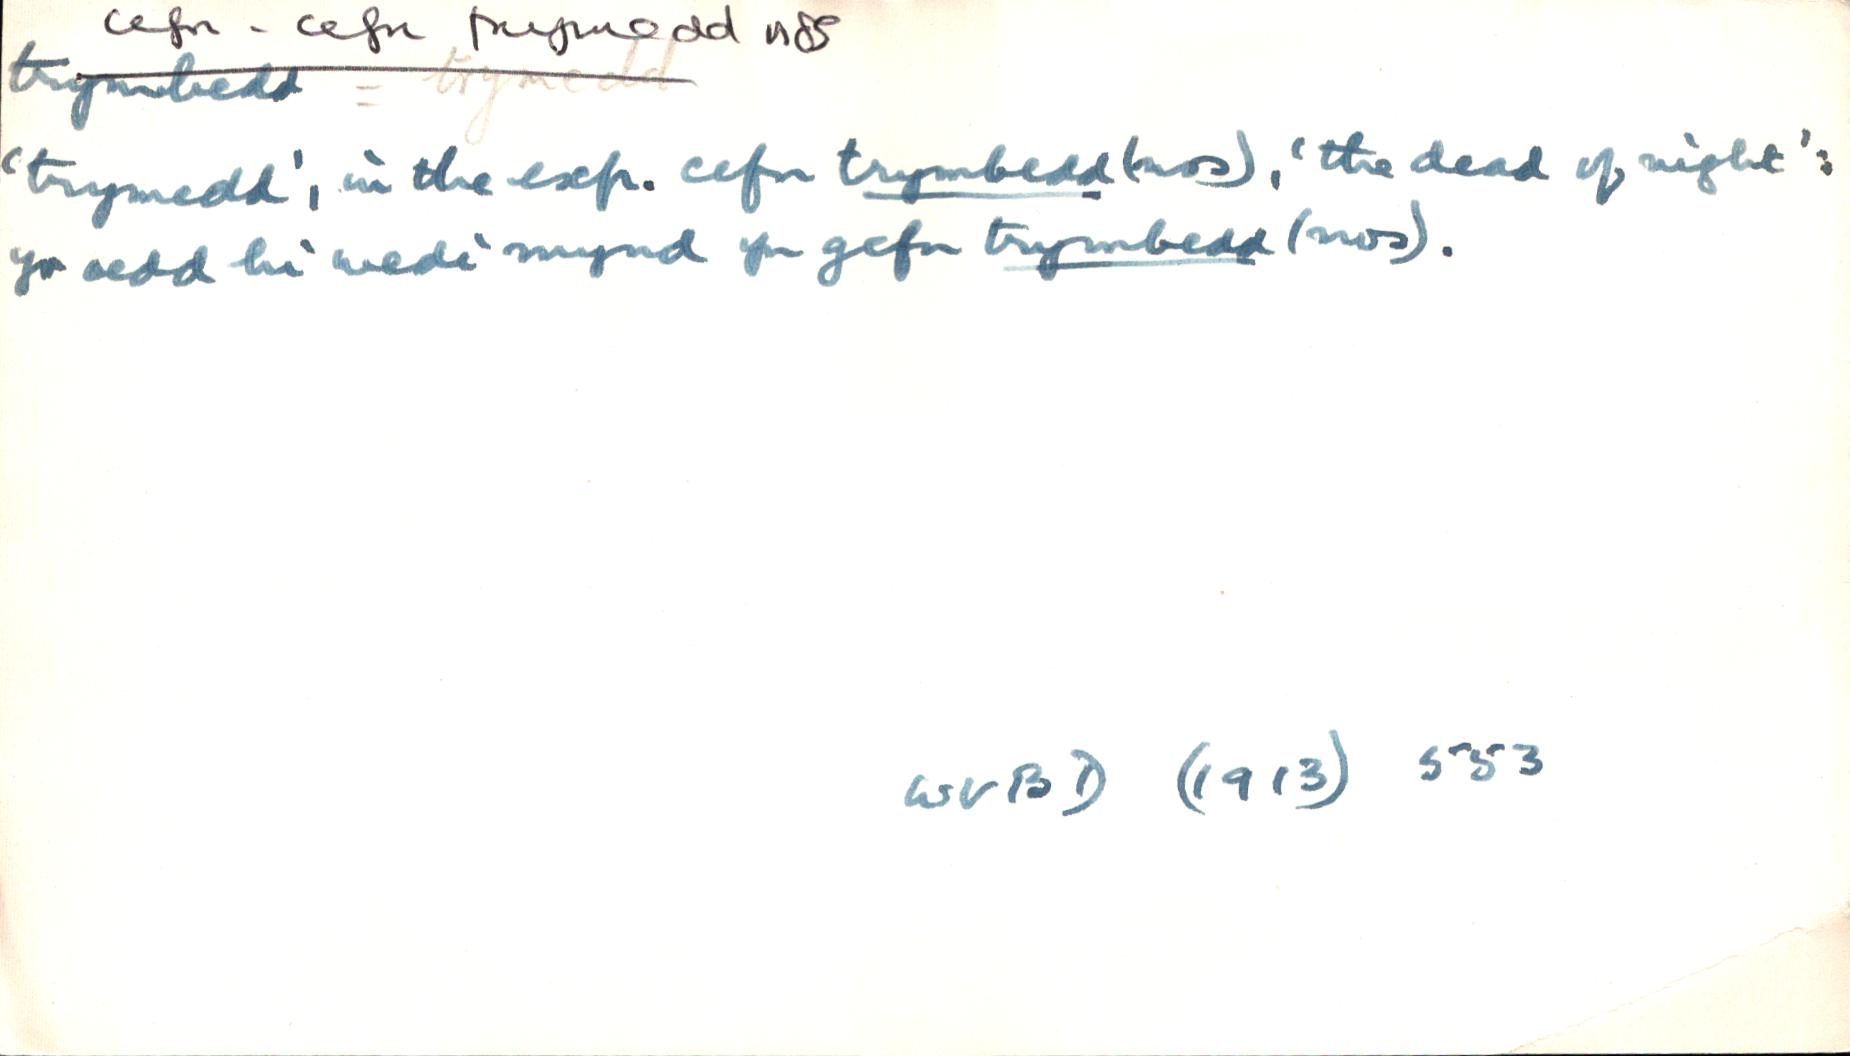 cefn - cefn trymedd nos
trymbedd = trymedd
'trymedd', in the exp. cefn trymbedd (nos), 'the dead of night':
yr oedd hi wedi mynd yn gefn trymbedd (nos).
WVBD (1913) 553